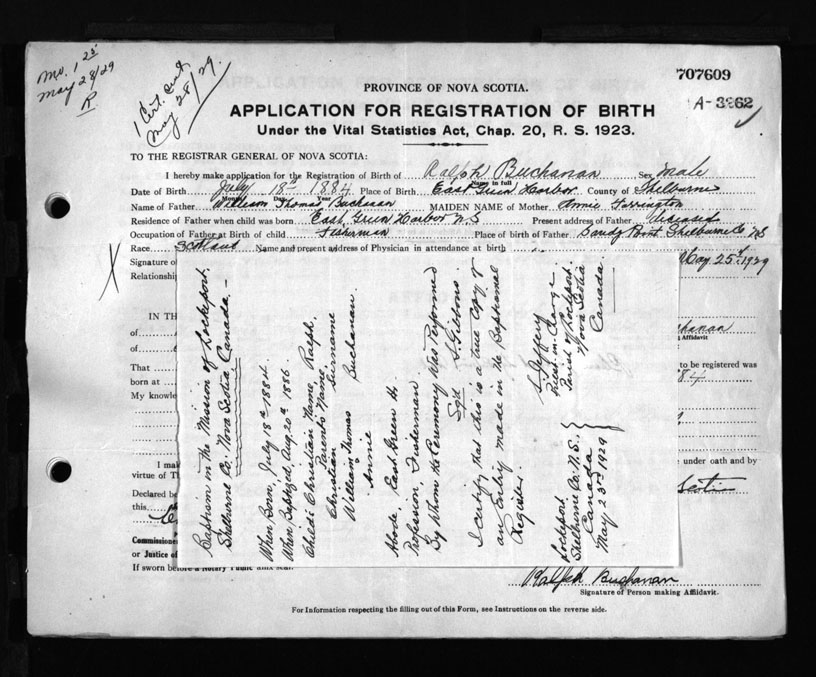 Mo. 1 25
May 28/29
R
1 Cert. sent
May 28/29.
707609
PROVINCE OF NOVA SCOTIA.
A-3362
APPLICATION FOR REGISTRATION OF BIRTH
Under the Vital Statistics Act, Chap. 20, R. S. 1923.
TO THE REGISTRAR GENERAL OF NOVA SCOTIA:
I hereby make application for the Registration of Birth of Ralph Buchanan Sex Male
Name in full
Date of Birth July 18th 1884 Place of Birth East Green Harbor County of Shelburne
Month Day Year
Name of Father William Thomas Buchanan MAIDEN NAME of Mother Annie Farrington
Residence of Father when child was born East Green Harbor N S Present address of Father deceased
Occupation of Father at Birth of child Fisherman Place of birth of Father Sandy Point Shelburne Co N S
Race Scotland Name and present address of Physician in attendance at birth
Signature of May 25th 1929
Relationship
X
IN TH
of
of
chanan
Affidavit
That to be registered was
born at 84
My knowle
I mak under oath and by
virtue of Th
Declared be
this Scotia
Commissione
or Justice of
If sworn before a Notary Public affix seal.
Ralph Buchanan
Signature of Person making Affidavit.
For Information respecting the filling out of this Form, see Instructions on the reverse side.
Baptism in the Mission of Lockeport,
Shelburne Co. Nova Scotia Canada.
When Born, July 18th 1884
When Baptized, Aug. 20th 1886
Child's Christian Name, Ralph.
Parents Name,
Christian Surname
William Thomas Buchanan
Annie
Abode, East Green H.
Profession, Fisherman
By Whom the Ceremony Was Performed
Sgd S. Gibbons
I certify that this is a true copy of
an Entry made in the Baptismal
Register.
Lockeport
Shelburne Co. N.S.
Canada
May 23rd 1929
Jeffery
Priest-in-Charge
Parish of Lockeport.
Nova Scotia
Canada